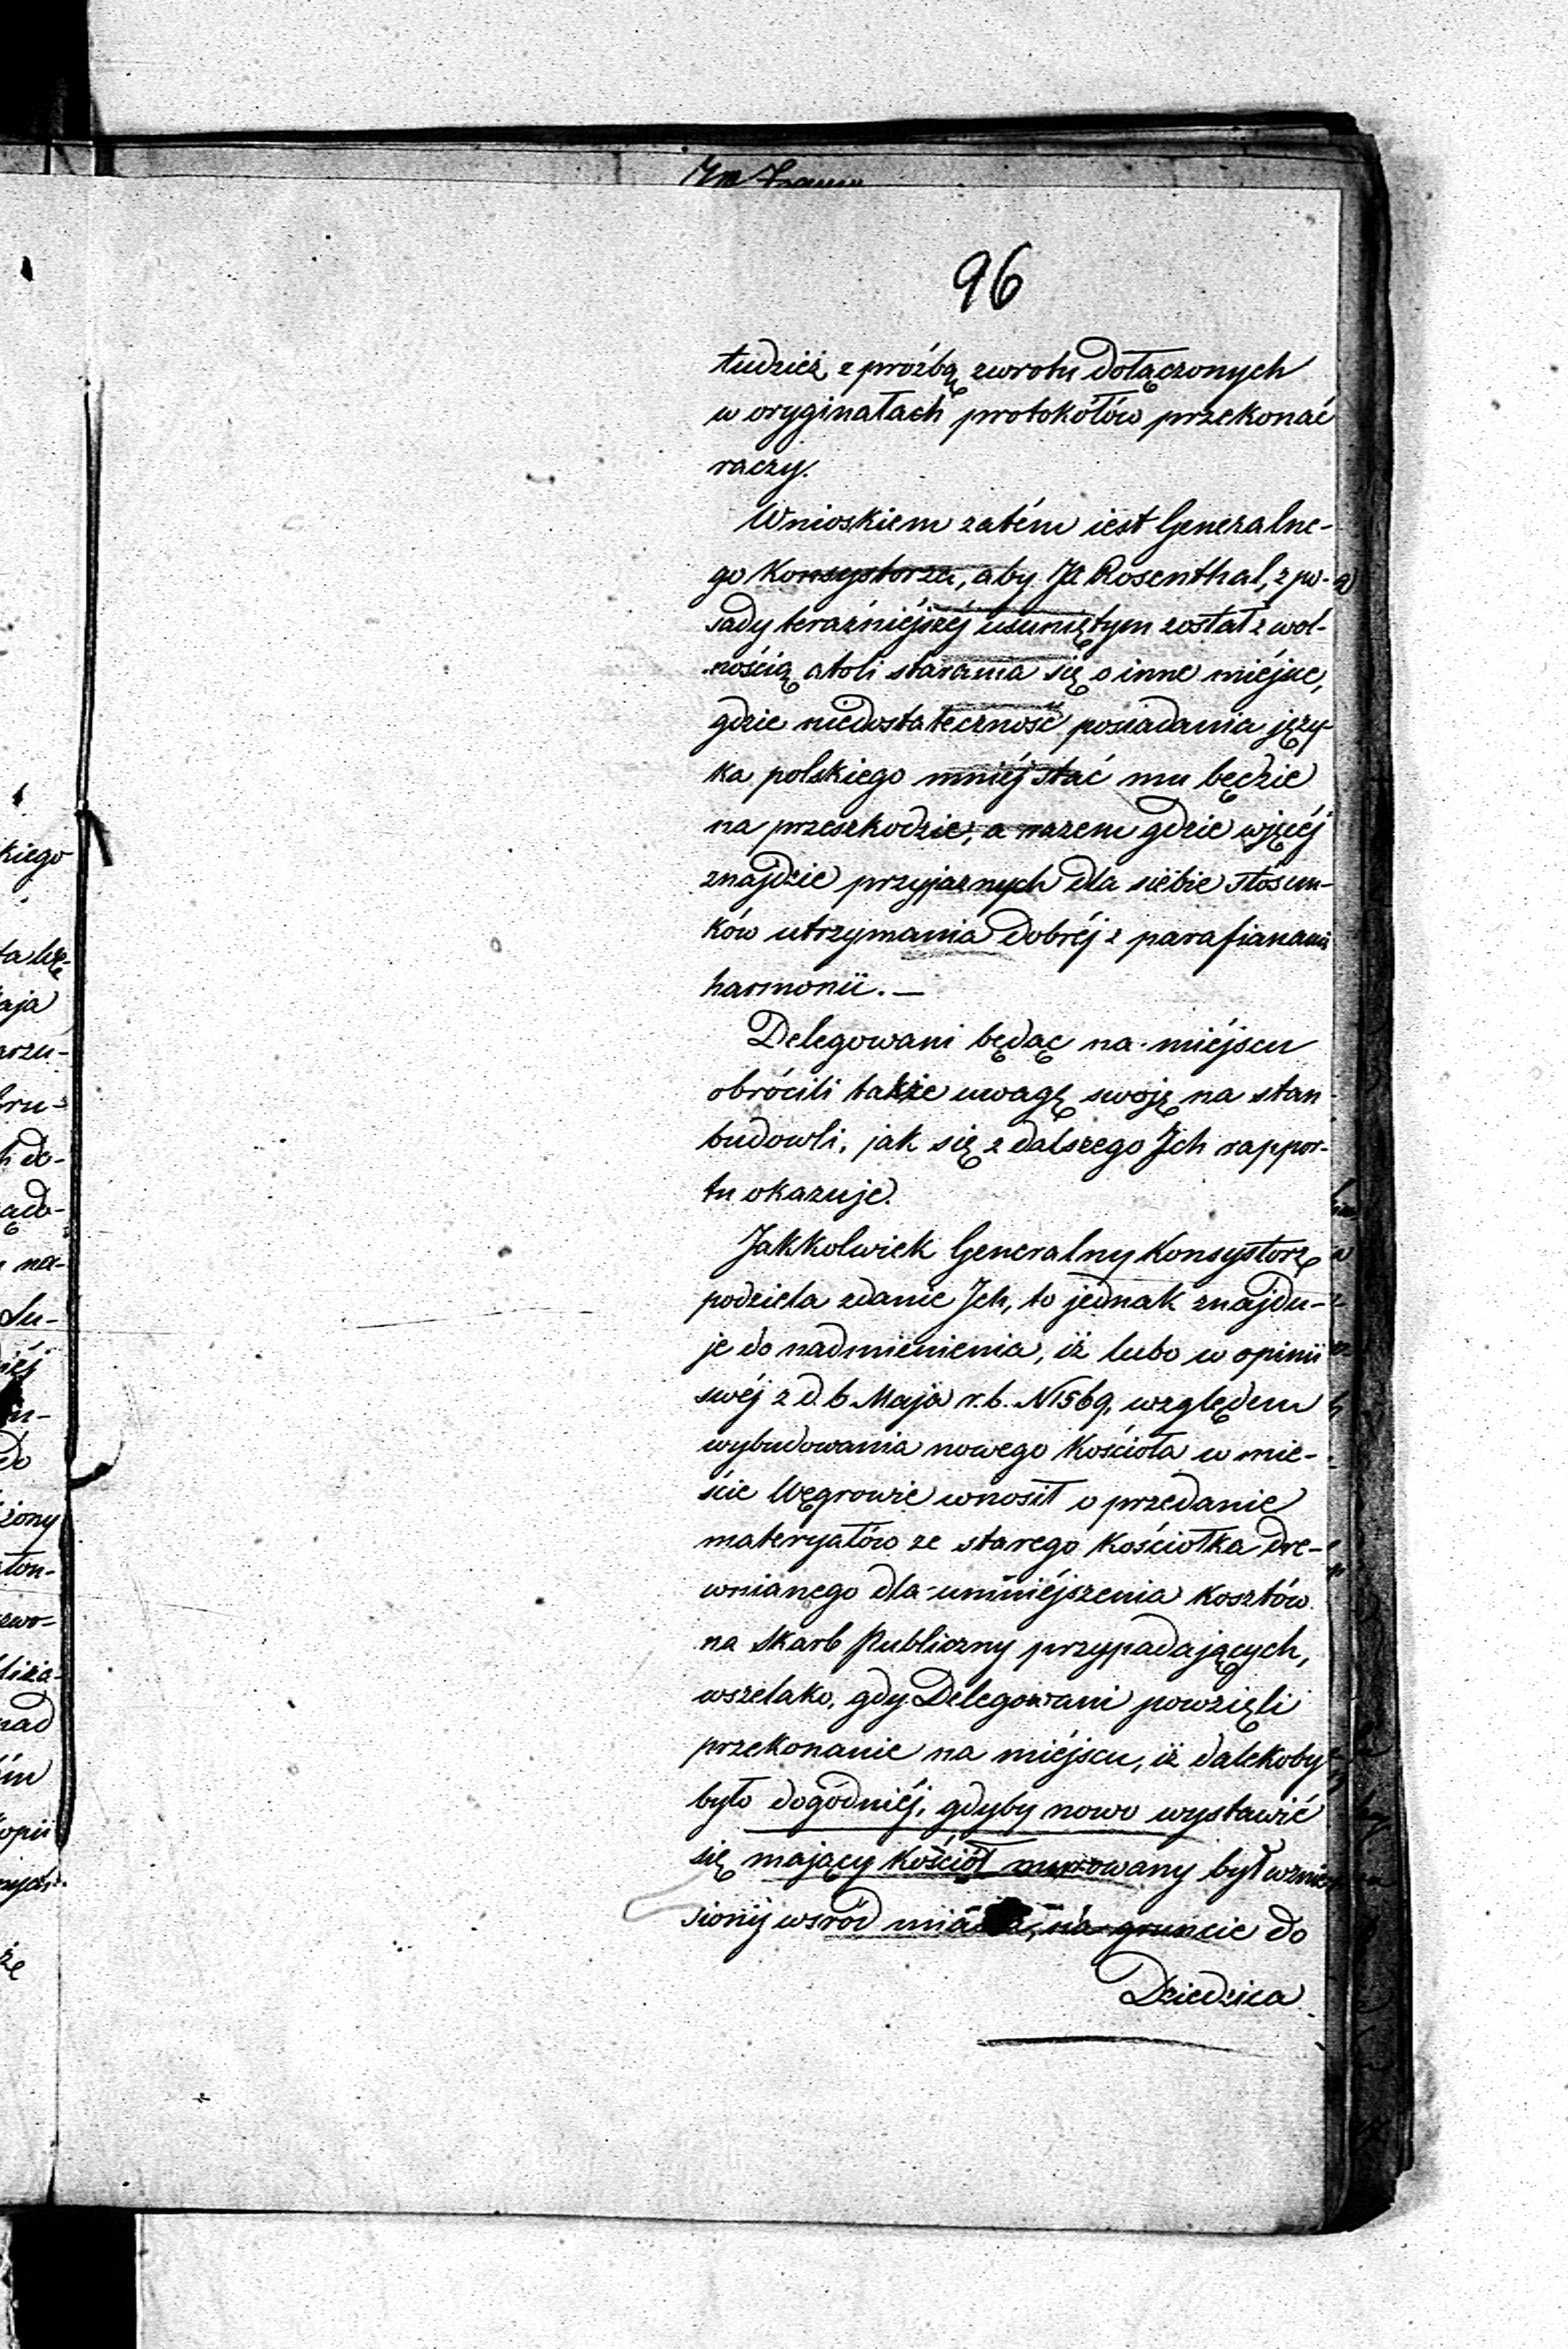 96
tudzież z proźbą zwrotu dołączonych
w oryginałach protokółów przekonać
raczy.
Wnioskiem zatém iest Generalne-
go Konsystorza, aby JX Rosenthal, z po-
sady teraźniéjszéj usuniętym został z wol-
nością atoli starania się o inne miéjsce,
gdzie niedostateczność posiadania języ-
ka polskiego mniéj stać mu będzie
na przeszkodzie, a razem gdzie więcéj
znajdzie przyjaznych dla siebie stosun-
ków utrzymania dobréj z parafianami
harmonii. —
Delegowani będąc na miéjscu
obrócili także uwagę swoję na stan
budowli, jak się z dalszego Jch rappor-
tu okazuje.
Jakkolwiek Generalny Konsystorz
podziela zdanie Jch, to jednak znajdu-
je do nadmienienia, iż lubo w opinii
swéj z d. 6 Maja r. b. N 1569, względem
wybudowania nowego Kościoła w mie-
ście Węgrowie wnosił o przedanie
materyałów ze starego Kościołka dre-
wnianego dla umniéjszenia kosztów
na Skarb Publiczny przypadających,
wszelako, gdy Delegowani powzięli
przekonanie na miéjscu, iż dalekoby
było dogodniéj, gdyby nowo wystawić
się mający Kościół murowany był wznie-
siony wsród miasta, na gruncie do
Dziedzica
kiego
aja
arzu-
na-
Su-
do
żony
nad
opii